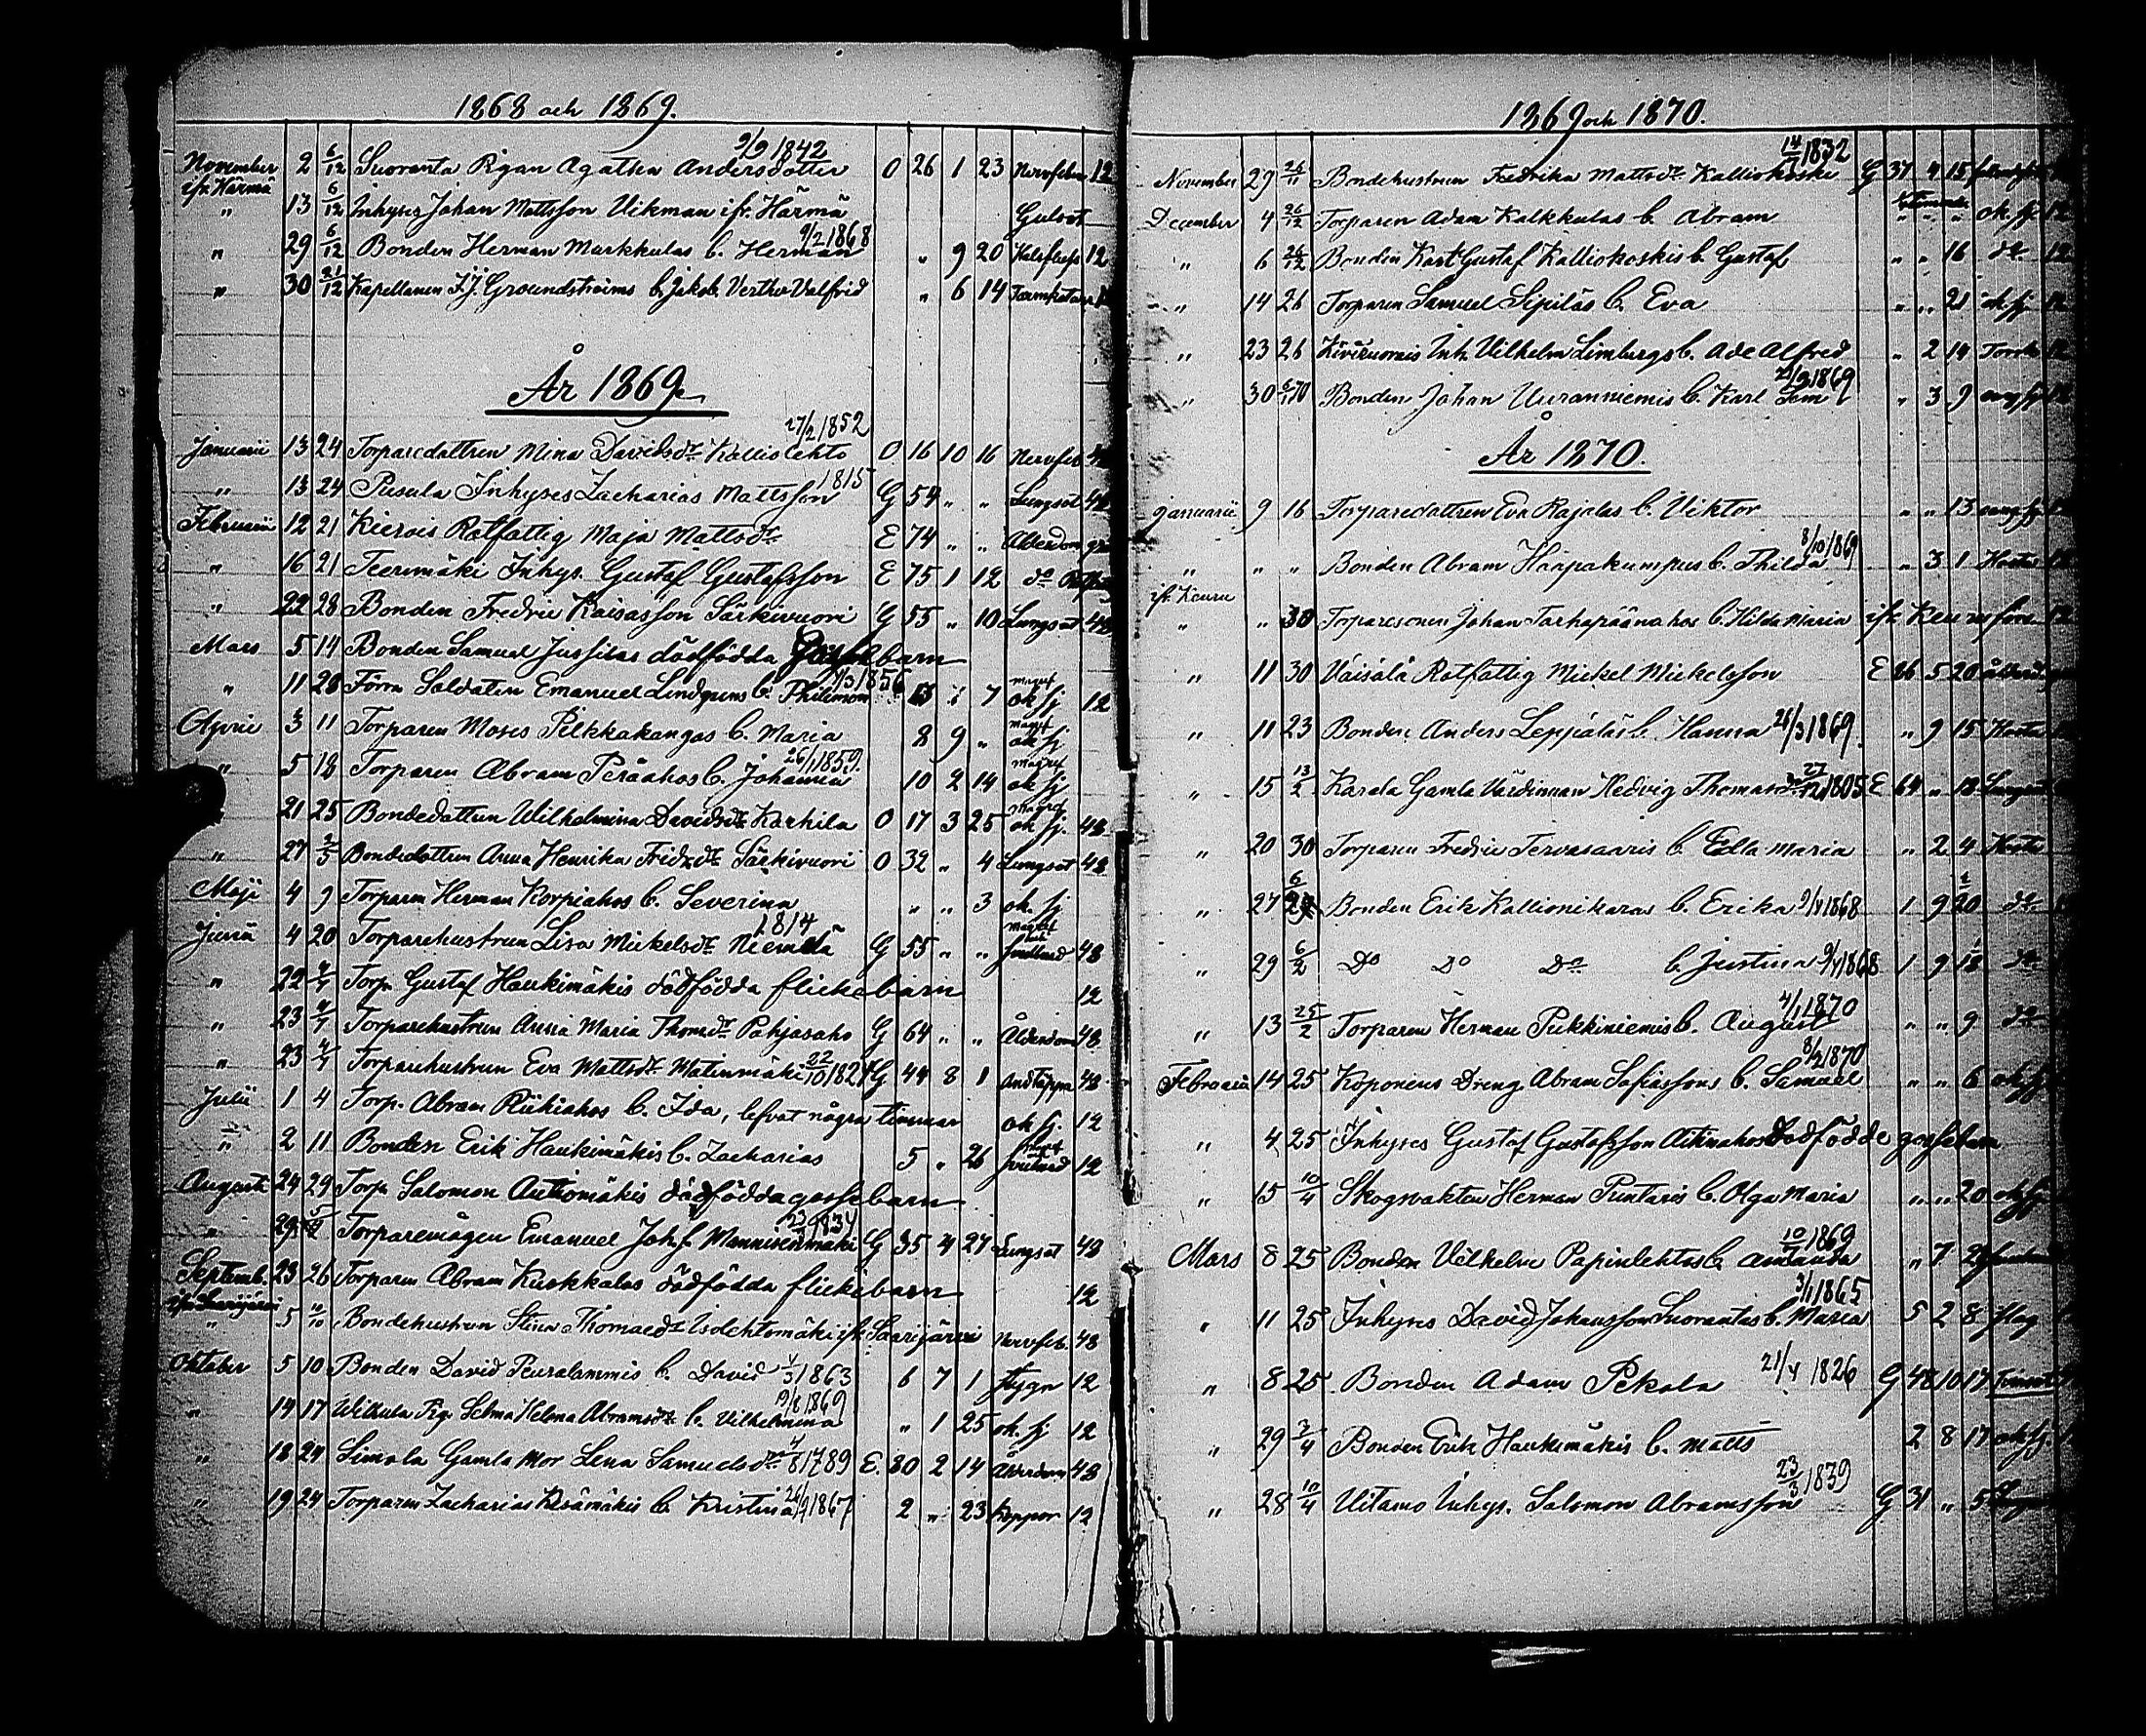 1868 och 1869.
9/9 1842
November 2 6/12 Suoranta Pigan Agatha Andersdotter O 26 1 23 Nervfeber 12
ifr. Härmä
" 13 6/12 Inhyses Johan Mattsson Vikman ifr. Härmä Gulsot
9/2 1868
" 29 6/12 Bonden Herman Markkulas b. Herman " 9 20 12
" 30 21/12 Kapellanen F.J. Groundstroems b. Jakob Verther Valfrid " 6 14
År 1869
27/2 1852
Januarii 13 24 Torparedottren Mina Davidsdr Kalliolehto O 16 10 16 Nervfeb
1815
" 13 24 Pusula Inhyses Zacharias Mattsson G 54 " " Lungsot 48
Februarii 12 21 Rotfattig Maja Mattsdr E 74 " " Ålderdom
" 16 21 Teerimäki Inhys. Gustaf Gustafsson E 75 1 12 do
" 22 28 Bonden Fredric Kaisasson Särkivuori G 55 " 10 Lungsot 48
Mars 5 14 Bonden Samuel Jussilas dödfödda Gossebarn
/3 1856
" 11 28 Förra Soldaten Emanuel Lindgrens b. Philemon 13 " 7 ok sj 12
Aprill 3 11 Torparen Moses Pilkkakangas b. Maria 8 9 " magref ok sj
26/1 1859.
" 5 18 Torparen Abram Peräahos b. Johanna 10 2 14 magref ok sj
21 25 Bondedottren Wilhelmina Davidsdr Karhila O 17 3 25 magref ok sj. 48
" 27 2/5 Bondedottren Anna Henrika Fredrdr Särkivuori O 32 " 4 Lungsot 48
Maji 4 9 Torparen Herman Korpiahos b. Severina " " 3 ok. sj
1814
Junii 4 20 Torparehustrun Lisa Mickelsdr Niemelä G 55 " " 48
" 22 4/7 Torp. Gustaf Haukimäkis dödfödda flickebarn 12
" 23 4/7 Torparehustrun Anna Maria Thomsdr Pohjasaho G 64 " " Ålderdom 48
" 23 4/7 Torparehustrun Eva Mattsdr Matinmäki 22/10 1824 G 44 8 1 Andtäppa 48
Julii 1 4 Torp. Abram Riihiahos b. Ida, lefvat några timmar ok sj. 12
" 2 11 Bonden Erik Haukimäkis b. Zacharias 5 " 26 12
Augusti 24 29 Torp. Salomon Autiomäkis dödfödda gossebarn
1834
" 29 Torparemågen Emanuel Johsf Mannisenmäki G 35 4 27 Lungsot 48
Septemb. 23 26 Torparen Abram Kuokkalas dödfödda flickebarn 12
ifr. Saarijärvi
" 5 10/10 Bondehustrun Stina Thomaedr Isolehtomäki ifr. Saarijärvi Nervfeb. 48
Oktober 5 10 Bonden David Peuralammis b. David 4/3 1863 6 7 1 12
19/8 1869
" 14 17 Wilkula Pig. Selma Helena Abramsdr b. Vilhelmina " 1 25 ok. sj 12
" 18 24 Simola Gamla Mor Lena Samuelsdr 4/8 1789 E. 80 2 14 Ålderdom 48
" 19 24 Torparen Zacharias Kesämäkis b. Kristina 26/7 1867 2 " 23 Koppor 12
1869 och 1870.
14/ 1832
November 29 26/11 Bondehustrun Fredrika Mattsdr Kalliokoski G 37 4 15
December 4 26/12 Torparen Adam Kalkkulas b. Abram " " " ok. sj 12
" 6 26/12 Bonden Karl Gustaf Kalliokoskis b. Gustaf " " 16 do 12
" 14 26 Torparen Samuel Sipiläs b. Eva " " 21 ok sj 12
" 23 26 Kivivuoris Inh. Vilhelm Limburgs b. Ade Alfred " 2 14
21/9 1869
" 30 6/1 70 Bonden Johan Uuranniemis b. Karl " 3 9 ang sj 12
År 1870.
Januarii 9 16 Torparedottren Eva Rajalas b. Viktor " " 13
8/10 1869
" " " Bonden Abram Haapakumpus b. Thilda " 3 1 Hosta
ifr. Keuru
" " 30 Torparesonen Johan Tarhapäänahos b. Hilda Maria ifr. Keuru
" 11 30 Väisälä Rotfattig Mickel Mickelsson E 86 5 20 ålderd
" 11 23 Bonden Anders Leppäläs b. Hanna 26/3 1869. " 9 15 Hosta
" 15 13/2 Karala Gamla Värdinnan Hedvig Thomasdr 27/12 1805 E 64 " 18 Lungsot
" 20 30 Torparen Fredric Tervasaaris b. Ella Maria " 2 4 Hosta
" 27 6/2 Bonden Erik Kallionikaras b. Erika 9/4 1868 1 9 20 do
" 29 6/2 Do Do Do b. Justina 9/4 1868 1 9 18 do
4/1 1870
" 13 25/2 Torparens Herman Pukkiniemis b. August " " 9 do
8/2 1870
Februarii 14 25 Koponens Dreng Abram Safiassons b. Samuel " " 6 ok sj
" 4 25 Inhyses Gustaf Gustafsson Aitinahos Dödfödde gossebarn
" 15 10/4 Skogvakten Herman Puntaris b. Olga Maria " " 20 ok sj
10/ 1869
Mars 8 25 Bonden Vilhelm Papinlehtos b. Amanda " 7 2
3/1 1865
" 11 25 Inhyses David Johansson Suorantas b. Maria 5 2 8 slag
" 8 25 Bonden Adam Pekola 21/4 1826 G 48 10 17
" 29 3/4 Bonden Erik Haukimäkis b. Matts 2 8 17 ok sj.
23/3 1839
" 28 10/4 Uitamo Inhys. Salomon Abramsson G 31 " 5